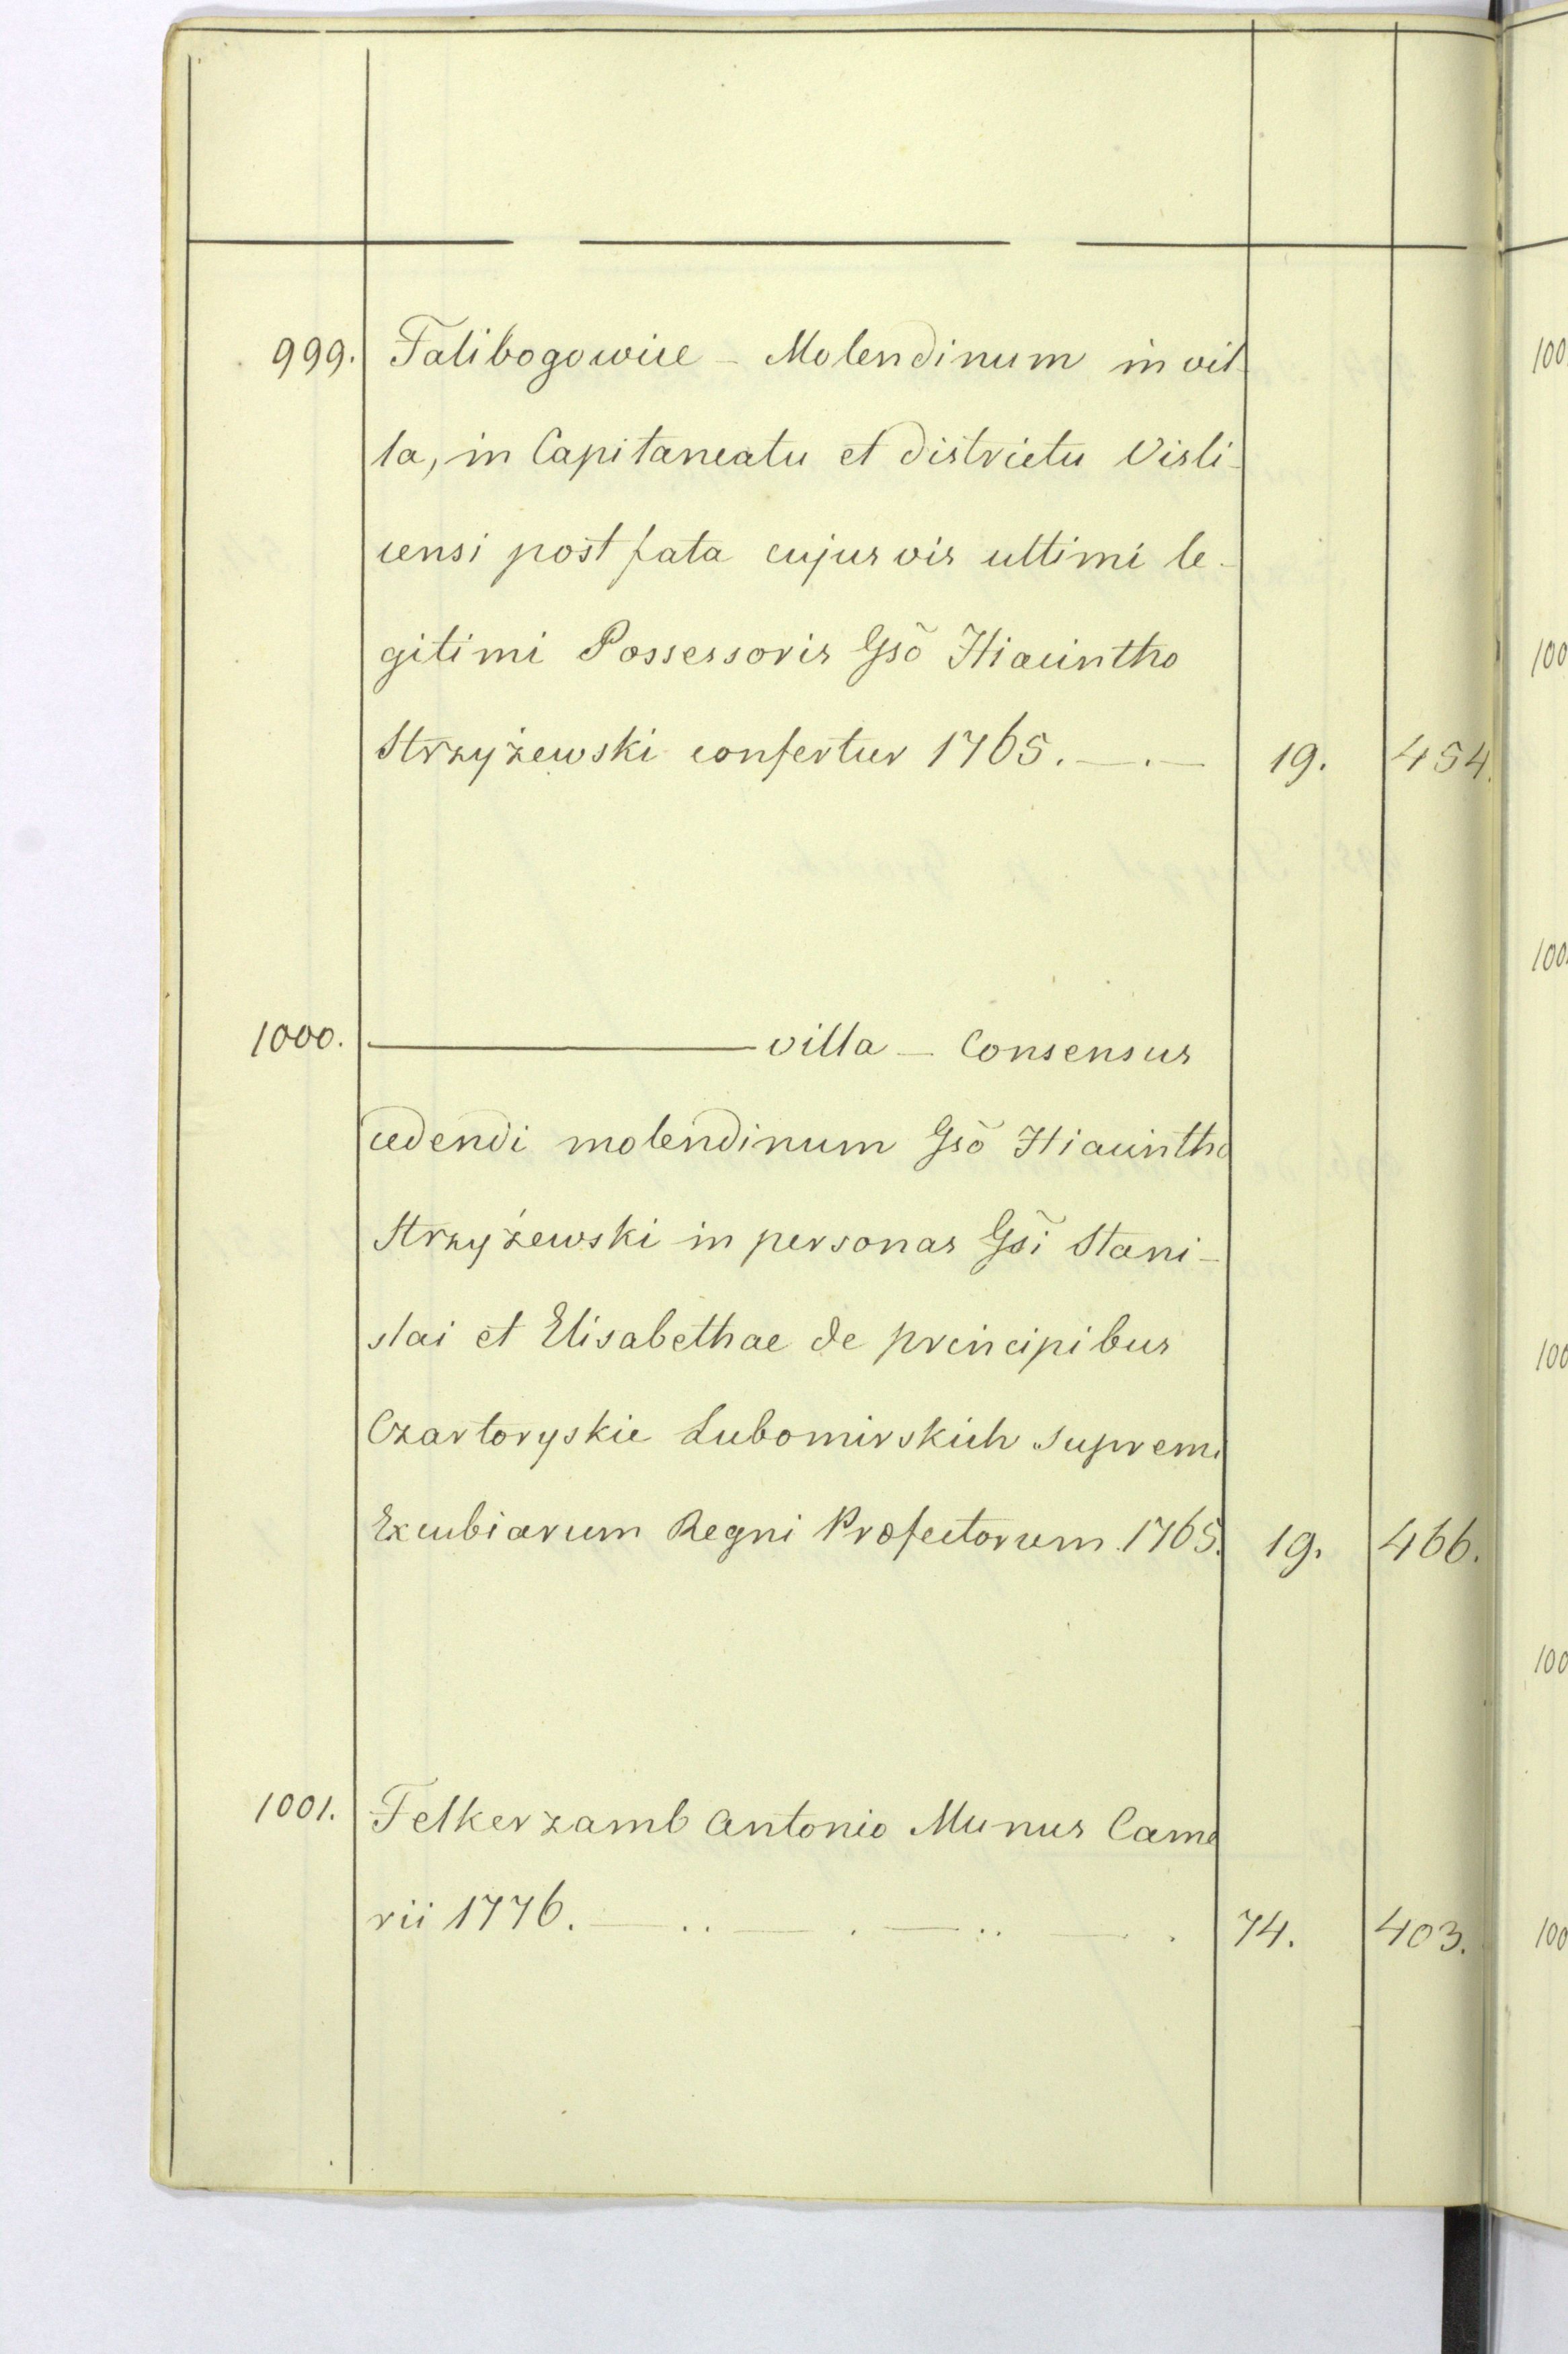 999. Falibogowice – Molendinum in vil-
la, in Capitaneatu et districtu Visli-
censi post fata cujusvis ultimi le-
gitimi Possessoris Gsõ Hiacintho
Strzyżewski confertur 1765. —.— 19. 454.
1000. ——— villa – Consensus
cedendi molendinum Gsõ Hiacintho
Strzyżewski in personas Gsĩ Stani-
slai et Elisabethae de principibus
Czartoryskie Lubomirskich supremi
Excubiarum Regni Præfectorum 1765. 19. 466.
1001. Felkerzamb Antonio Munus Came
rii 1776. — .. — . — .. — . 74. 403.
100
100
100
100
100
100